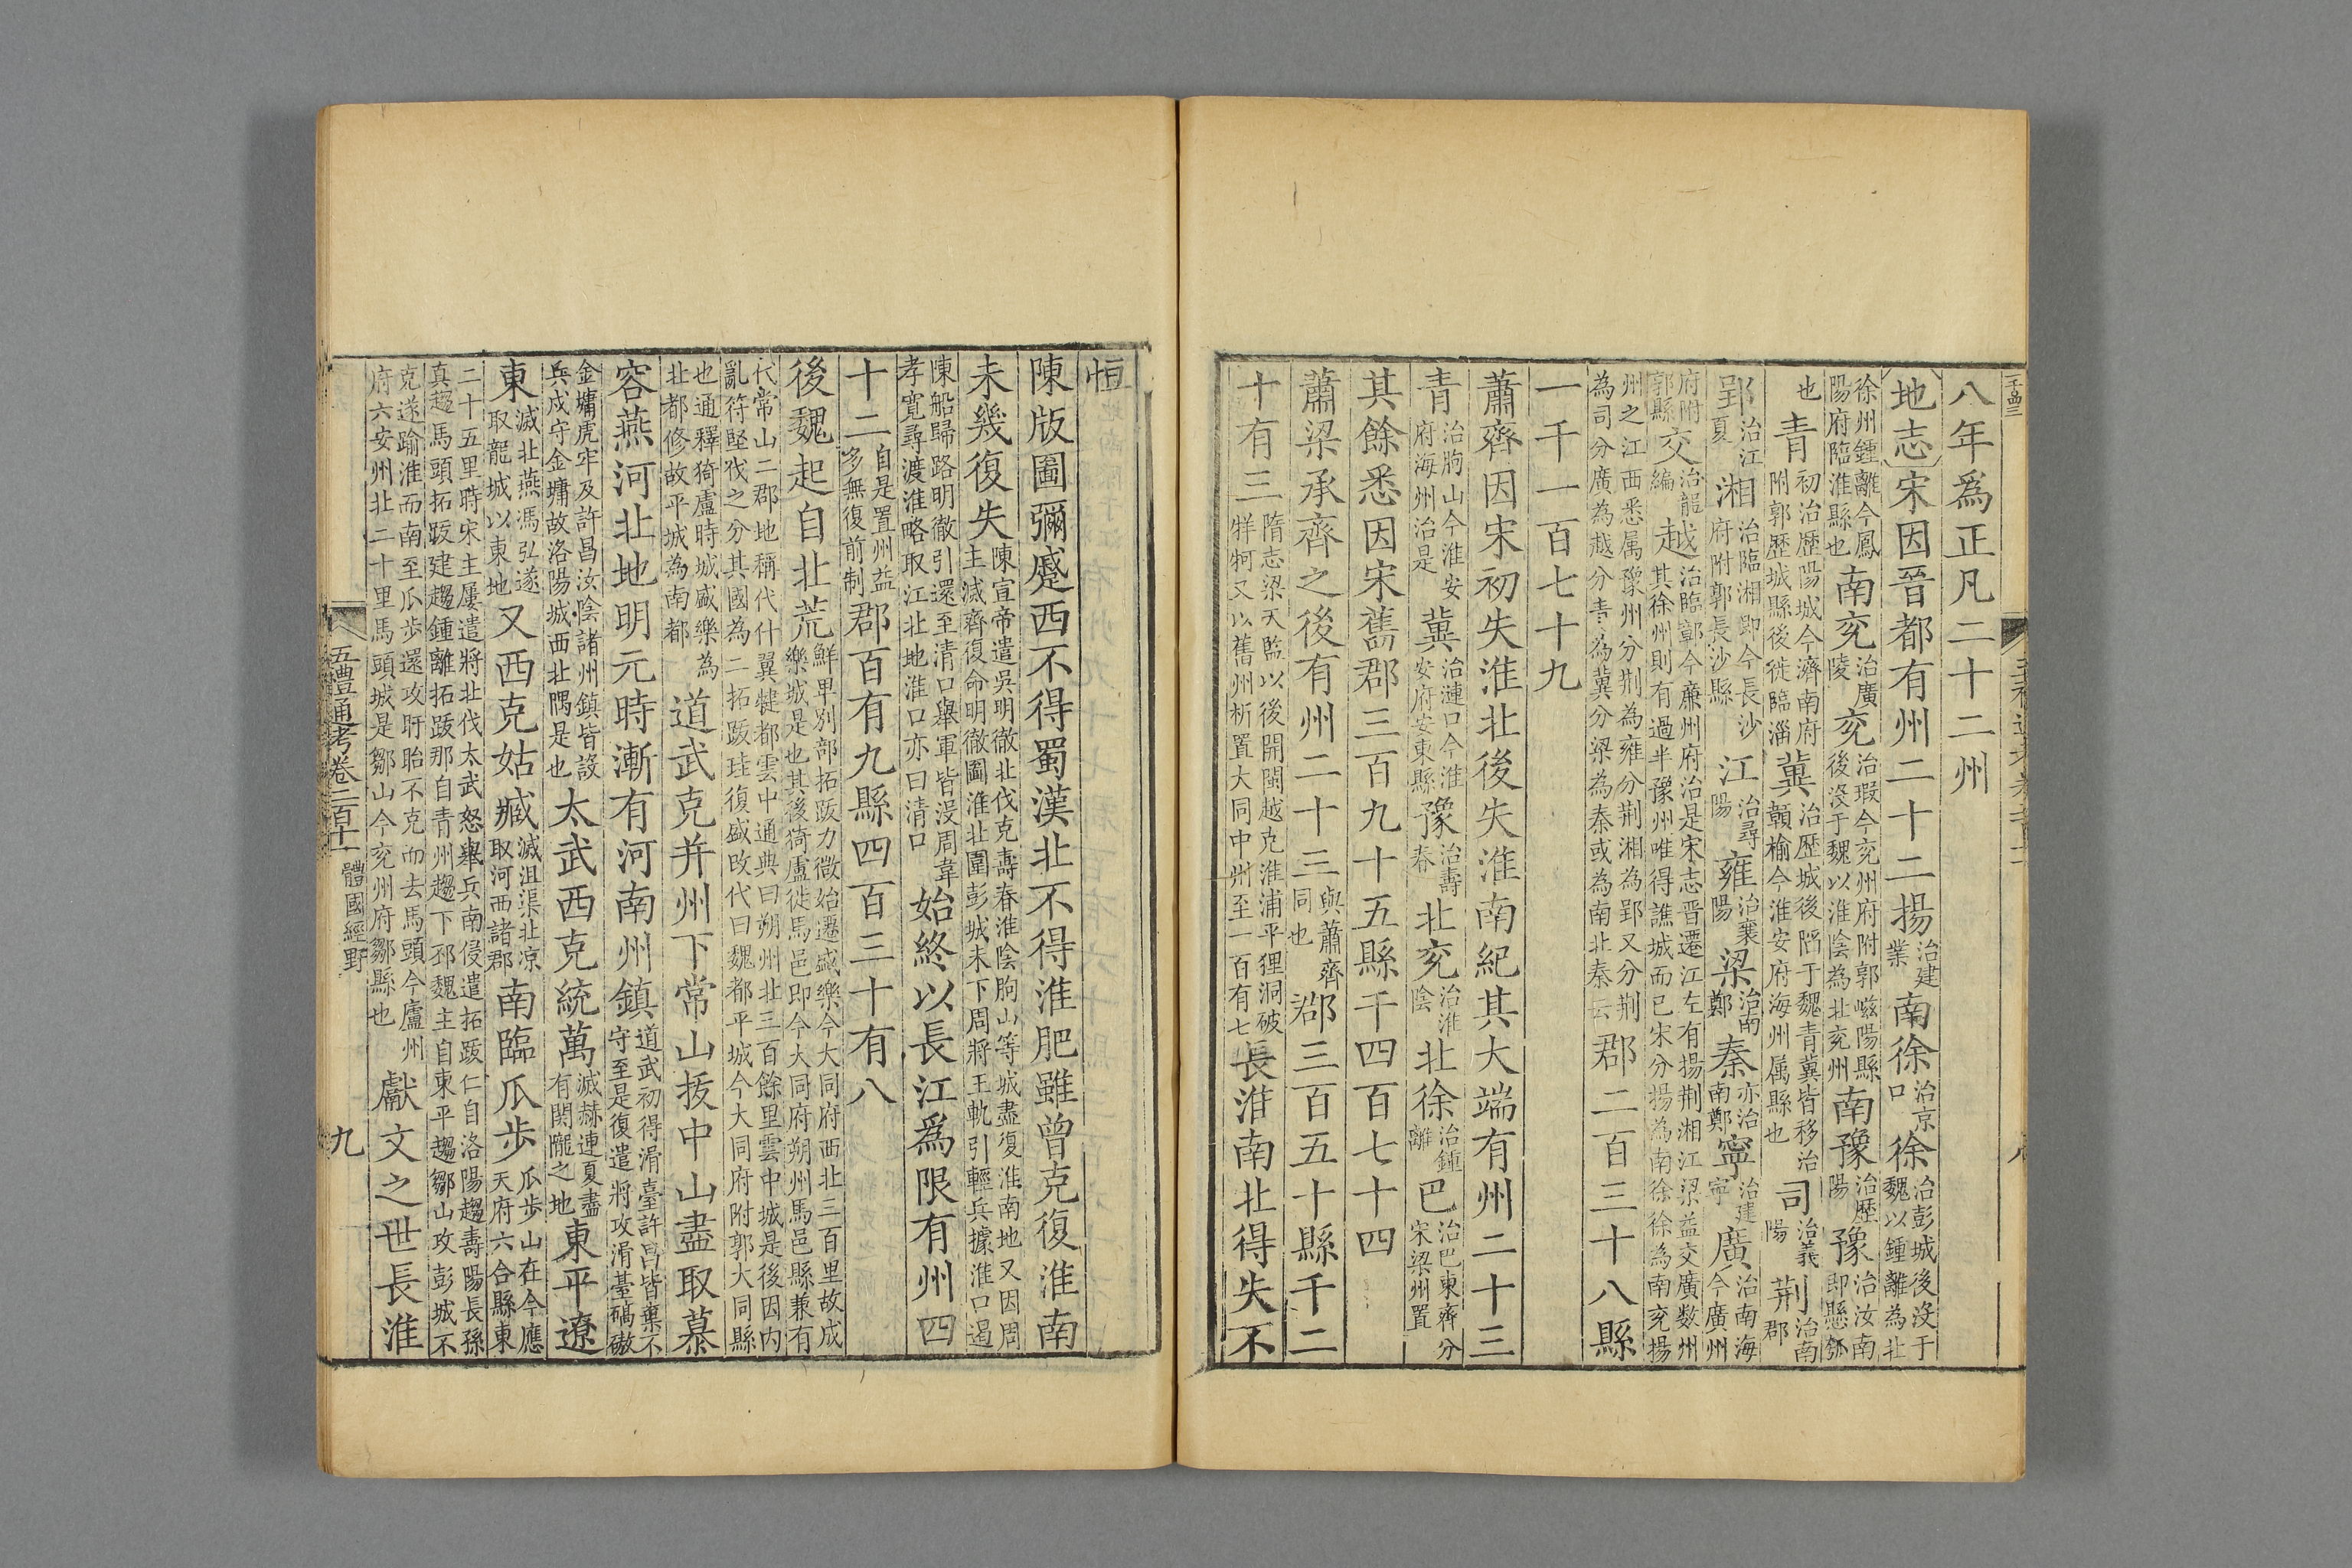 八年爲正凡二十二州
地志宋因晉都有州二十二揚治建業南徐治京口徐治彭城後没于魏以鍾離為北
徐州鍾離今鳳陽府臨淮縣也南兖治廣陵兖治瑕今兖州府附郭嵫陽縣後没于魏以淮陰為北兖州南豫治歷陽豫治汝南即懸瓠
也青初治歷陽城今濟南府附郭歷城縣後徙臨淄冀治歷城後陷于魏青冀皆移治贑榆今淮安府海州属縣也司治義陽荆治南郡
郢治江夏湘治臨湘即今長沙府附郭長沙縣江治尋陽雍治襄陽梁治南鄭秦亦治南鄭寧治建寧廣治南海今廣州
府附郭縣交治龍編越治臨鄣今亷州府治是宋志晉遷江左有揚荆湘江梁益交廣数州其徐州則有過半豫州唯得譙城而已宋分揚為南徐徐為南兖揚
州之江西悉属豫州分荆為雍分荆湘為郢又分荆為司分廣為越分青為冀分梁為秦或為南北秦云郡二百三十八縣
一千一百七十九
蕭齊因宋初失淮北後失淮南紀其大端有州二十三
青治朐山今淮安府海州治是冀治漣口今淮安府安東縣豫治壽春北兖治淮陰北徐治鍾離巴治巴東齊分宋梁州置
其餘悉因宋舊郡三百九十五縣千四百七十四
蕭梁承齊之後有州二十三與蕭齊同也郡三百五十縣千二
十有三隋志梁天監以後開閩越克淮浦平狸洞破牂牁又以舊州析置大同中州至一百有七長淮南北得失不
恒
陳版圖彌蹙西不得蜀漢北不得淮肥雖曾克復淮南
未幾復失陳宣帝遣吳明徹北伐克壽春淮陰朐山等城盡復淮南地又因周主滅齊復命明徹圖淮北圍彭城未下周將王軌引輕兵據淮口遏
陳船歸路明徹引還至清口舉軍皆没周韋孝寬尋渡淮略取江北地淮口亦曰清口始終以長江爲限有州四
十二自是置州益多無復前制郡百有九縣四百三十有八
後魏起自北荒鮮卑别部拓跋力微始遷盛樂今大同府西北三百里故成樂城是也其後猗盧徙馬邑即今大同府朔州馬邑縣兼有
代常山二郡地稱代什翼犍都雲中通典曰朔州北三百餘里雲中城是後因内亂符堅伐之分其國為二拓跋珪復盛改代曰魏都平城今大同府附郭大同縣
也通釋猗盧時城盛樂為北都修故平城為南都道武克并州下常山拔中山盡取慕
容燕河北地明元時漸有河南州鎮道武初得滑臺許昌皆棄不守至是復遣將攻滑臺碻磝
金墉虎牢及許昌汝陰諸州鎮皆設兵戍守金墉故洛陽城西北隅是也太武西克統萬滅赫連夏盡有関隴之地東平遼
東滅北燕馮弘遂取龍城以東地又西克姑臧滅沮渠北涼取河西諸郡南臨瓜步瓜步山在今應天府六合縣東
二十五里時宋主屢遣將北伐太武怒舉兵南侵遣拓跋仁自洛陽趨壽陽長孫真趨馬頭拓跋建趨鍾離拓跋那自青州趨下邳魏主自東平趨鄒山攻彭城不
克遂踰淮而南至瓜步還攻盱眙不克而去馬頭今廬州府六安州北二十里馬頭城是鄒山今兖州府鄒縣也獻文之世長淮
五禮通考卷二百十一 體國經野 九